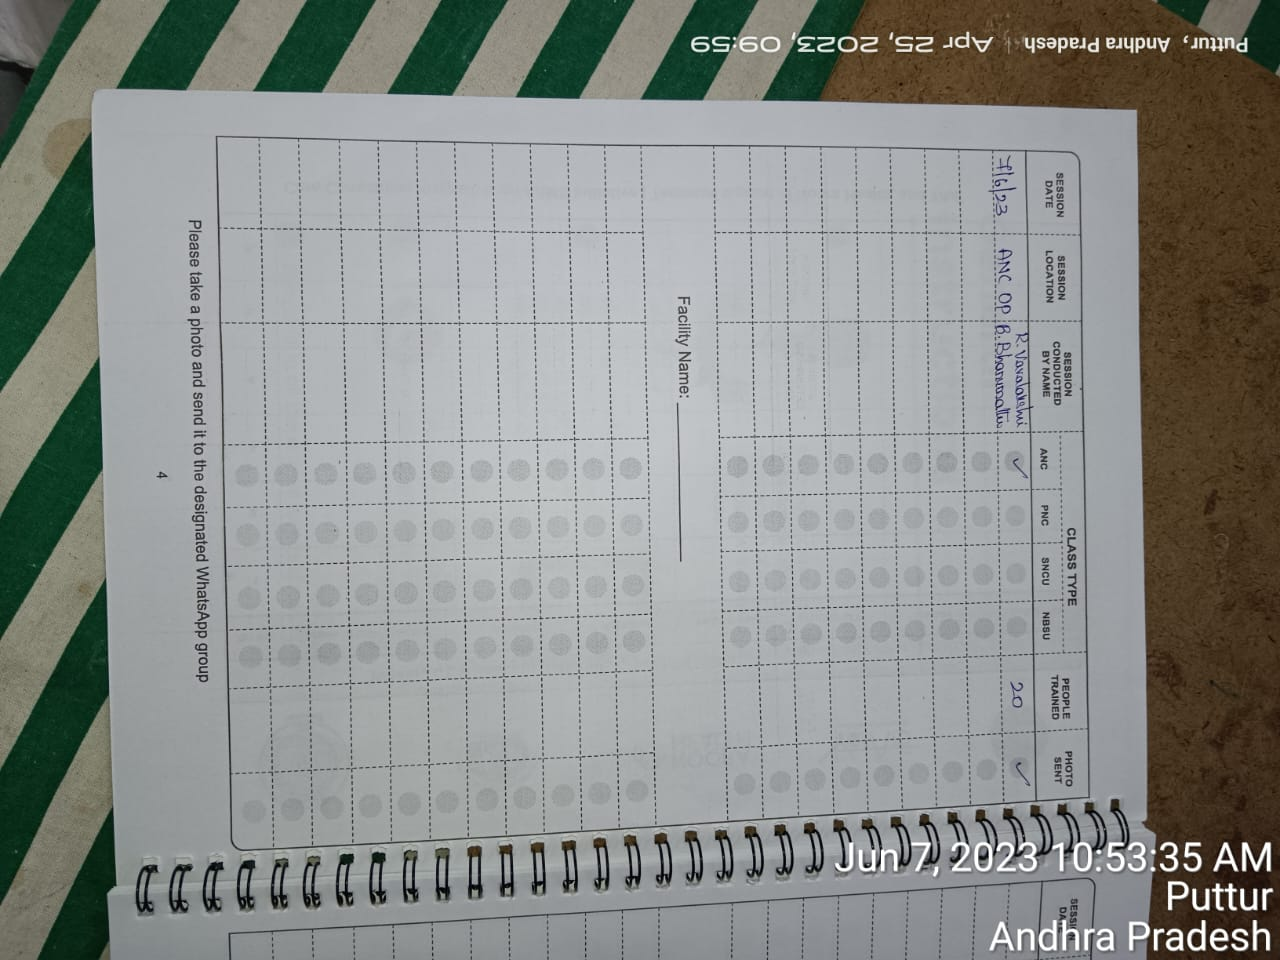 Puttur, Andhra Pradesh | Apr 25, 2023, 09:59
SESSION DATE
SESSION LOCATION
SESSION CONDUCTED BY NAME
CLASS TYPE
ANC
PNC
SNCU
NBSU
PEOPLE TRAINED
PHOTO SENT
7/6/23
ANC OP
R. Varalakshmi
B. Bhanumathi
✓
20
✓
Facility Name:
Please take a photo and send it to the designated WhatsApp group
4
Jun 7, 2023 10:53:35 AM
Puttur
Andhra Pradesh